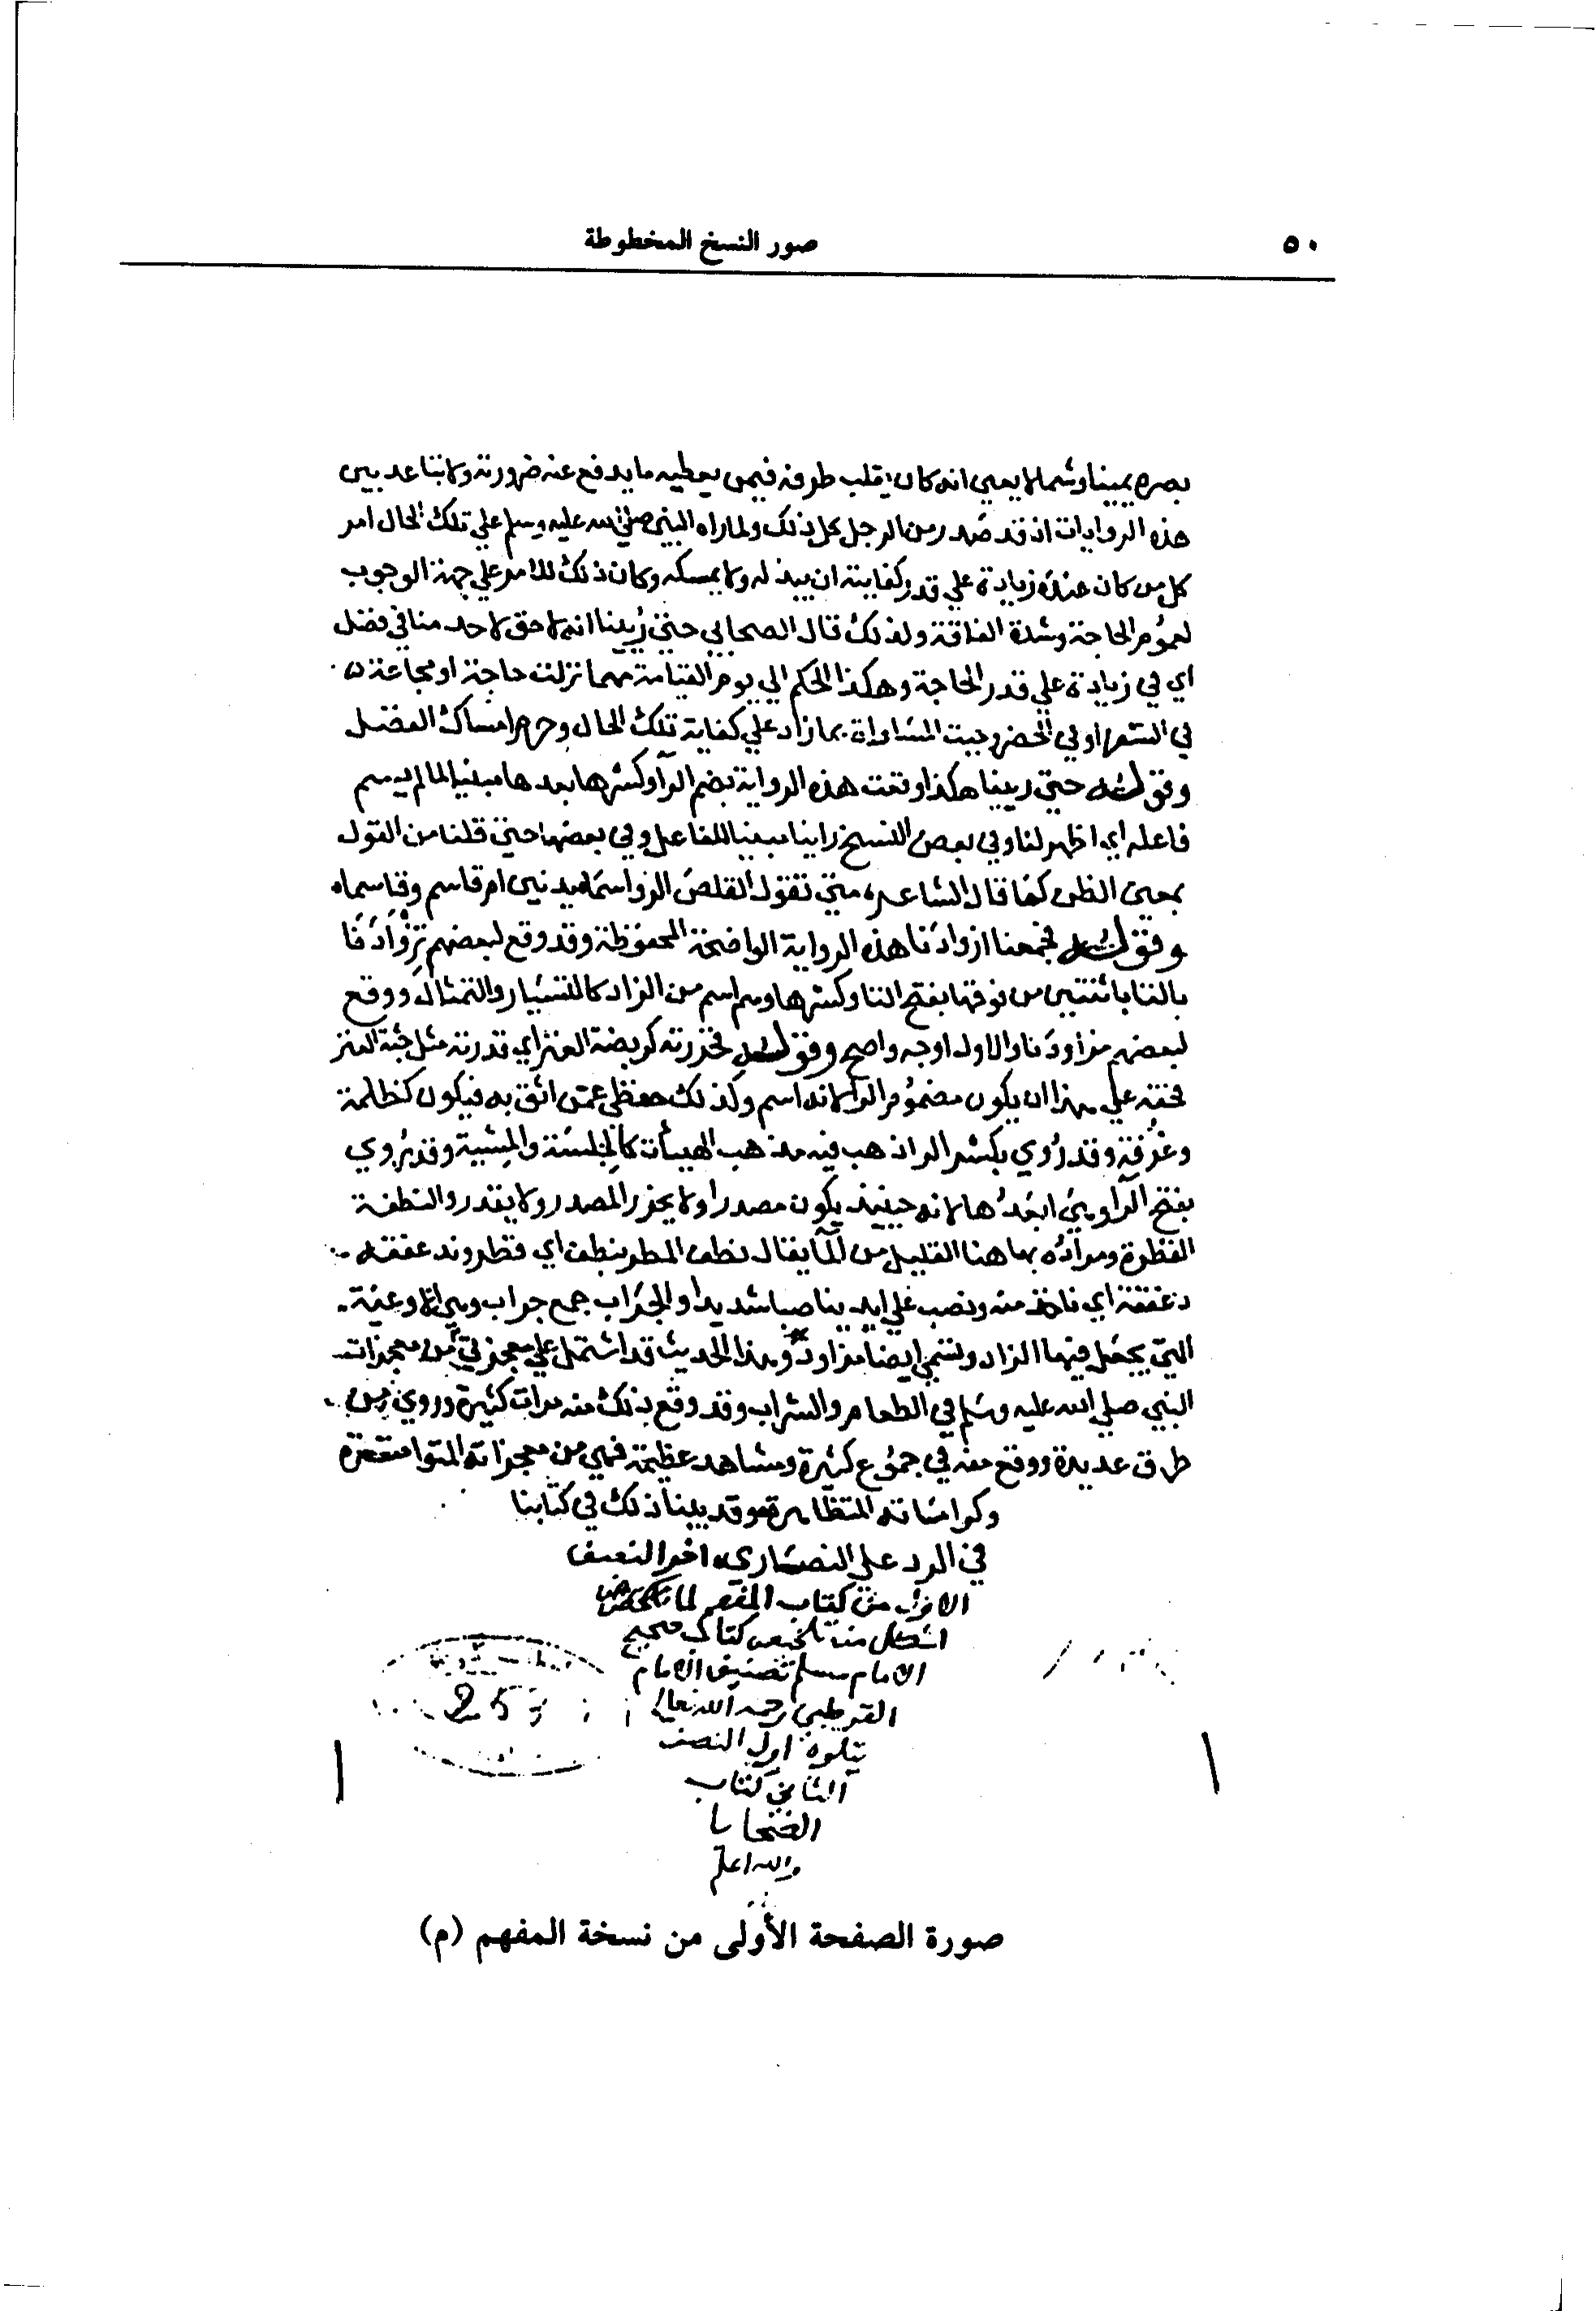 ٥٠
صور النسخ المخطوطة
بصره يمينا وشمالا يعني انه كان يقلب طرفه فيمن يعطيه ما يدفع عنه ضرورته ولا تباعد بين
هذه الروايات اذ قد صدر من الرجل كل ذلك ولما راه النبي صلى الله عليه وسلم علي تلك الحال امر
كل من كان عنده زيادة علي قدر كفايته ان يبذله ولا يمسكه وكان ذلك الامر علي جهة الوجوب
لعموم الحاجة وشدة الفاقة ولذلك قال الصحابي حتي رُيينا انه لا حق لاحد منا في فضل
اي في زيادة علي قدر الحاجة وهكذا الحكم الي يوم القيامة مهما نزلت حاجة او مجاعة
في السفر او في الحضر وجبت المساواة بما زاد علي كفاية تلك الحال وحرم امساك الفضل
وقوله حتي ريينا هكذا وقعت هذه الرواية بضم الرآ وكسر ها بعدها مبنيا لما لم يسم
فاعله اي اظهر لنا وفي بعض النسخ راينا مبنيا للفاعل وفي بعضها حتي قلنا من القول
بمعني الظن كما قال الشاعر متي تقول القلص الرواسما يدنين ام قاسم وقاسما
وقوله فجمعنا ازوادنا هذه الرواية الواضحة المحفوظة وقد وقع لبعضهم تزوادنا
بالتا باثنتين من فوقها بفتح التا وكسرها وهو اسم من الزاد كالتسيار والتمثال ووقع
لبعضهم مزاودنا والاول اوجه واصح وقوله فحزرته كربضة العنز اي قدرته مثل جثة العنز
فحقه علي هذا ان يكون مضموم الرآ لانه اسم وكذلك حفظي عمن اثق به فيكون كظلمة
وغرفة وقد رُوي بكسر الرا ذهب فيه مذهب الهيآت كالجلسة والمشية وقد يُروي
بفتح الرآ وهي ابعدُها لانه حينيذ يكون مصدرا ولا يحزر المصدر ولا يقدر والنطفة
القطرة ومراده بها هنا القليل من المآ يقال نطف المطر ينطف اي قطر وندغفقه
دغفقة اي ناخذ منه ونصب علي ايدينا صبا شديدا والجراب جمع جراب وهي الاوعية
التي يجعل فيها الزاد وتسمي ايضا مزاود وهذا الحديث قد اشتمل علي معجزتين من معجزات
النبي صلي الله عليه وسلم في الطعام والشراب وقد وقع ذلك منه مرات كثيرة وروي من
طرق عديدة ووقع منه في جموع كثيرة ومشاهد عظيمة فهي من معجزاته المتواترة
وكراماته المتظاهرة وقد بينا ذلك في كتابنا
في الرد علي النصاري اخر النصف
الاول من كتاب المفهم لما
اشكل من تلخيص كتاب صحيح
الامام مسلم تصنيف الامام
القرطبي رحمه الله تعالى
يتلوه اول النصف
الثاني كتاب
الضحايا
والله اعلم
صورة الصفحة الأولى من نسخة المفهم (م)